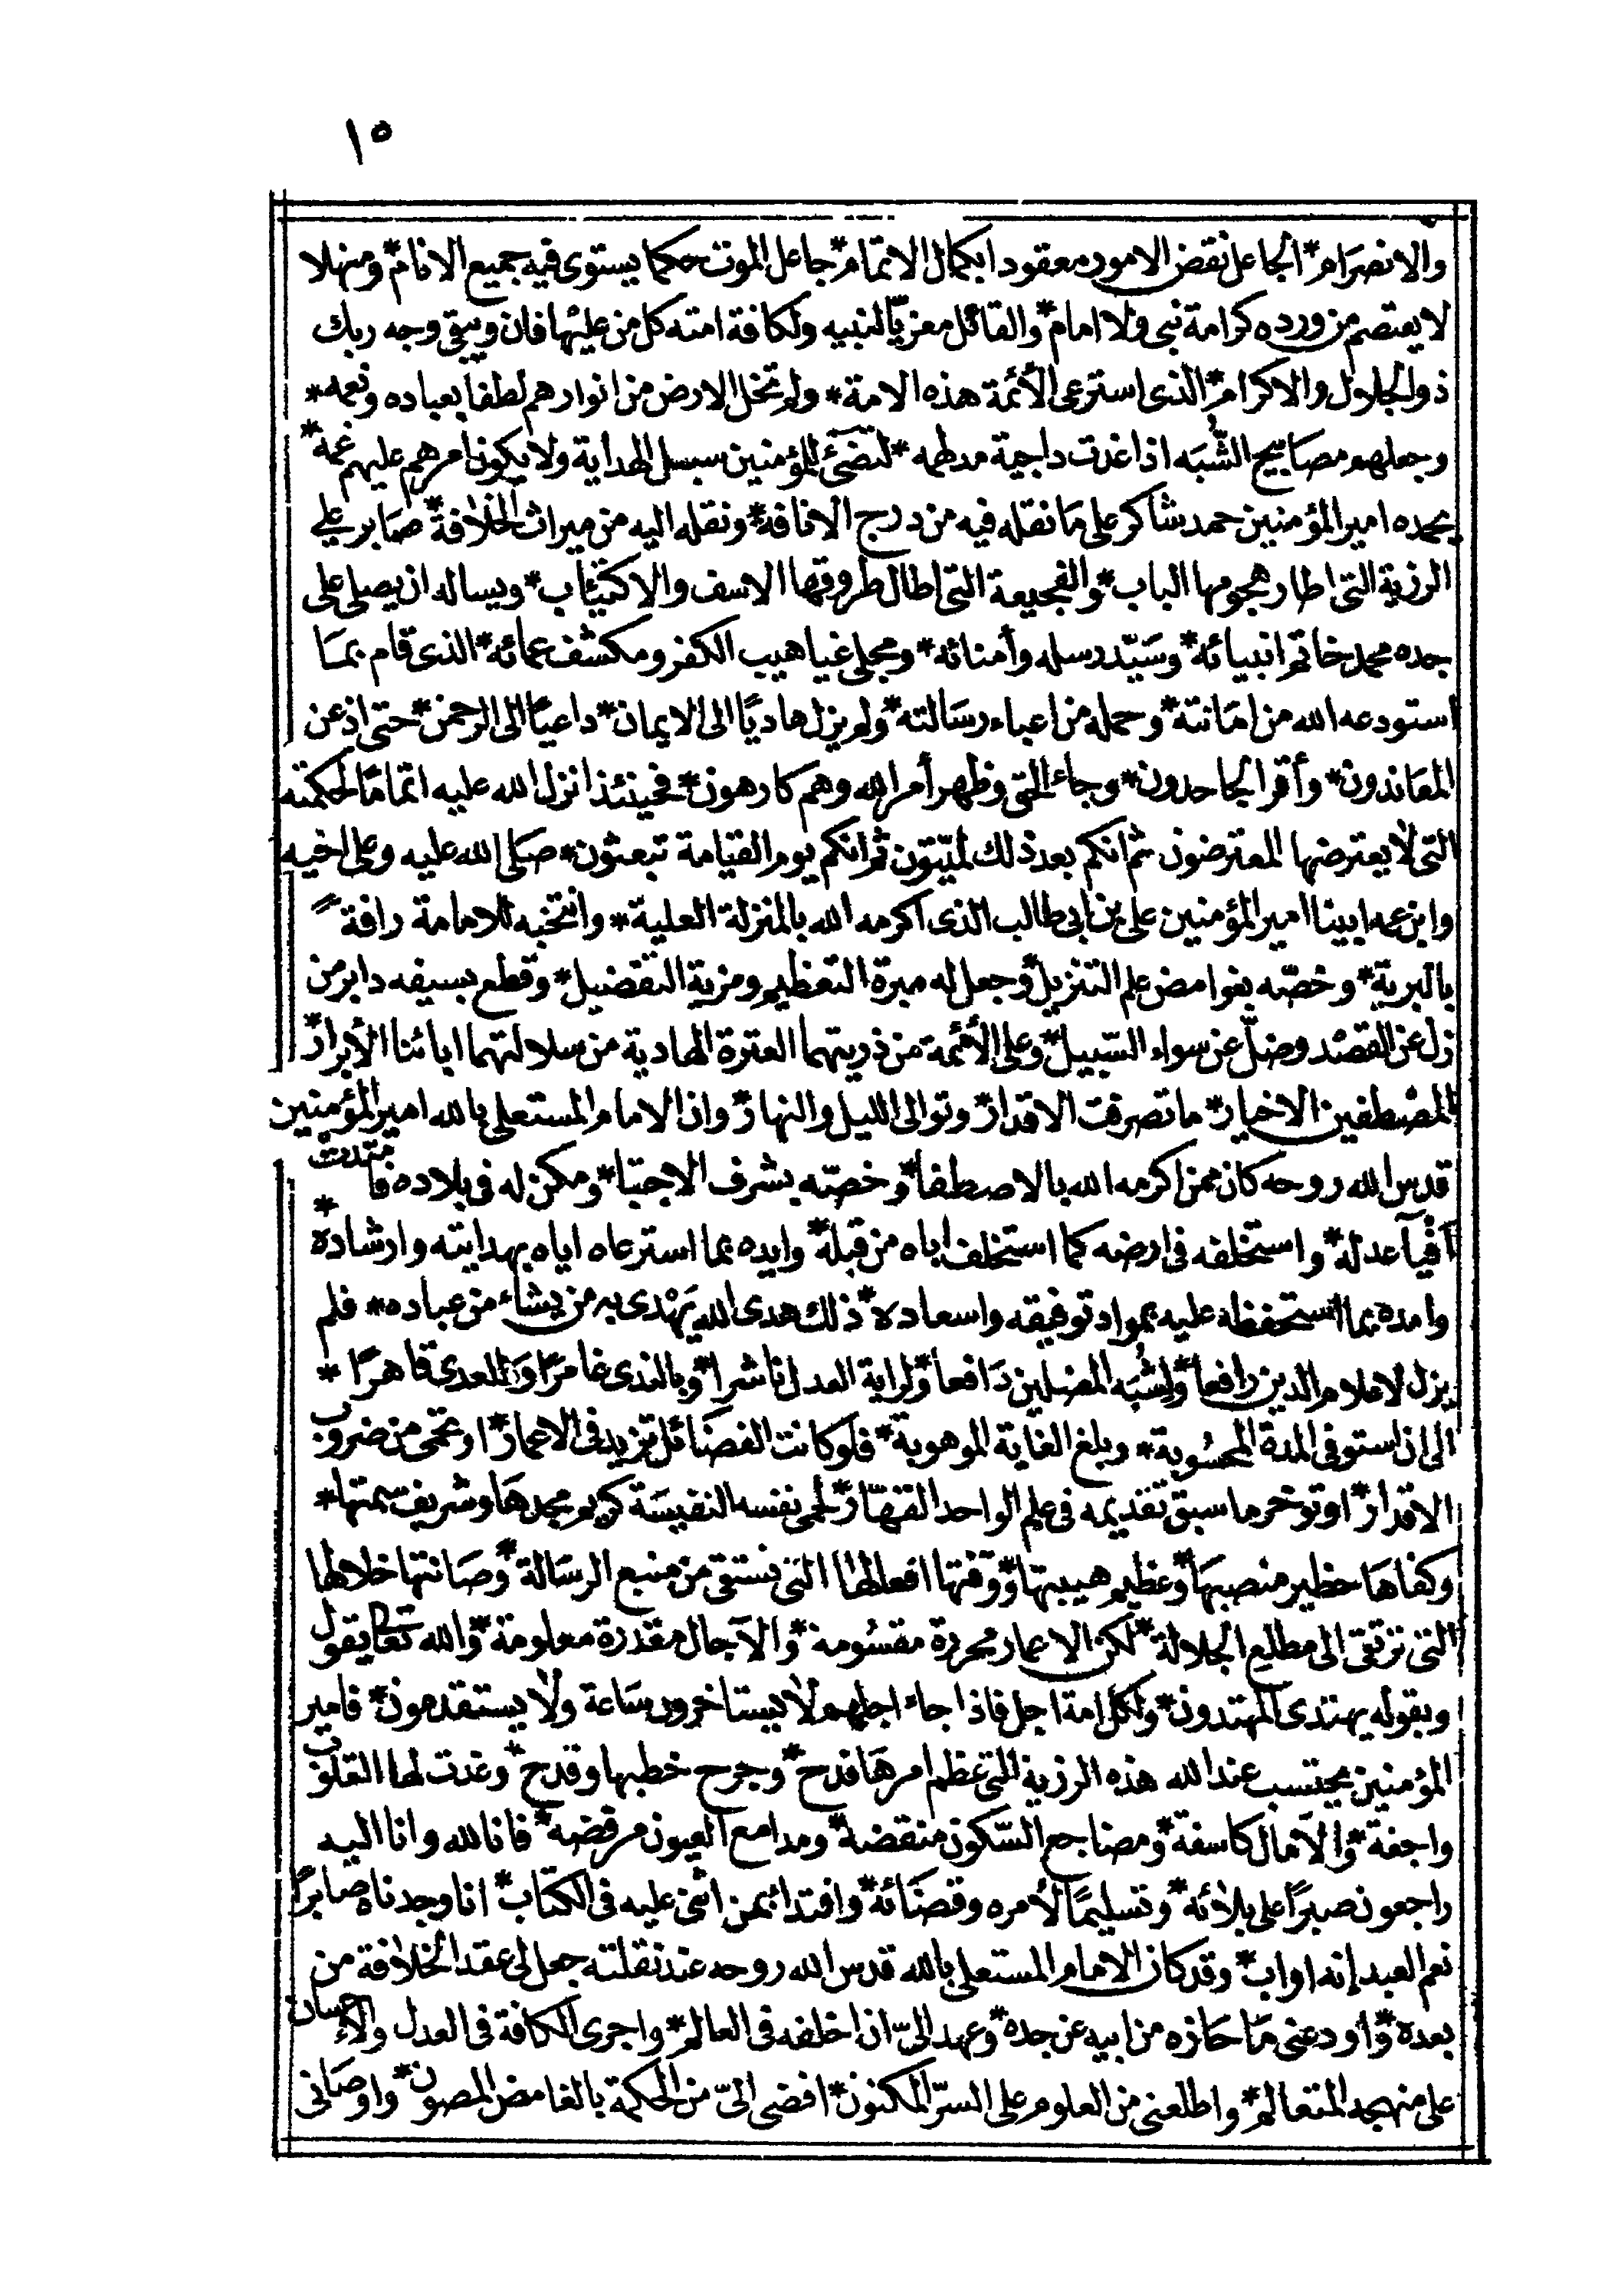 ١٥
والانصرام * الجاعل نقض الامور معقودا بكمال الاتمام * جاعل الموت حكما يستوى فيه جميع الانام * ومنهلا
لا يعتصم من ورده كرامة نبى ولا امام * والقائل معزيّا لنبيه ولكافة امته كل من عليها فان ويبقى وجه ربك
ذو الجلال والاكرام * الذى استرعى الأئمة هذه الامة * ولم تخل الارض من انوارهم لطفا بعباده ونعمه *
وجعلهم مصابيح الشُّبَه اذا غدت داجية مدلهمه * لتضئ للمؤمنين سبل الهداية ولا يكون امرهم عليهم غمة *
يحمده امير المؤمنين حمد شاكر على ما نقله فيه من درج الانافة * ونقله اليه من ميراث الخلافة * صابر على
الرزية التى اطار هجومها الباب * والفجيعة التى اطال طروقها الاسف والاكتئاب * ويساله ان يصلى على
جده محمد خاتم انبيائه * وسَيّد رسله وأمنائه * ومجلى غياهيب الكفر ومكشف عمائه * الذى قام بما
استودعه الله من امانته * وحمله من اعباء رسالته * ولم يزل هاديًا الى الايمان * داعيًا الى الرحمن * حتى اذعن
المعاندون * وأقر الجاحدون * وجاء الحق وظهر أمر الله وهم كارهون * فحينئذ انزل الله عليه اتمامًا لحكمته
التى لا يعترضها المعترضون ثم انكم بعد ذلك لميّتون ثم انكم يوم القيامة تبعثون * صلى الله عليه وعلى اخيه
وابن عمه ابينا امير المؤمنين على بن ابى طالب الذى اكرمه الله بالمنزلة العلية * وانتخبه للامامة رافةً
بالبرية * وخصّه بغوامض علم التنزيل * وجعل له مبرة التعظيم ومزية التفضيل * وقطع بسيفه دابر من
زل عن القصد وضلّ عن سواء السّبيل * وعلى الأئمة من ذريتهما العترة الهادية من سلالتهما ابائنا الأبرار *
المصطفين الاخيار * ما تصرفت الاقدار * وتوالى الليل والنهار * وان الامام المستعلى بالله امير المؤمنين
قدس الله روحه كان ممن اكرمه الله بالاصطفا * وخصّه بشرف الاجتبا * ومكن له فى بلاده فامتدت *
أفيآ عدله * واستخلفه فى ارضه كما استخلف اباه من قبله * وايده بما استرعاه اياه بهدايته وارشاده
وامده بما استحفظه عليه بمواد توفيقه واسعاده * ذلك هدى الله يَهْدى به من يشاء من عباده * فلم
يزل لاعلام الدين رافعا * ولشُبَه المضلين دَافعا * ولراية العدل ناشرا * وبالندى غامرًا وللعدى قاهرًا *
الى ان استوفى المدة المحسُوبة * وبلغ الغاية الموهوبة * فلو كانت الفضَائل تزيد فى الاعمار * او تحمى من ضروب
الاقدار * او توخر ما سبق تقديمه فى علم الواحد القهّار * لحمى نفسه النفيسَة كريم مجدها وشريف سمتها *
وكفاهَا خطير منصبهَا * وعظيم هيبتها * ووقتها افعالها التى تستقى من منبع الرسَالة * وصَانتها خلالها
التى ترتقى الى مطلع الجلالة * لكن الاعمار محررة مقسُومة * والآجال مقدرة معلومة * والله تعالى يقول
وبقوله يهتدى المهتدون * ولكل امة اجل فاذا جاء اجلهم لا يستاخرون سَاعة ولا يستقدمون * فامير
المؤمنين يحتسب عند الله هذه الرزية التى عظم امرهَا فدح * وجرح خطبها وقدح * وغدت لها القلوب
واجفة * والآمال كاسفة * ومضاجع السّكون منقضة * ومدامع العيون مرفضه * فانا لله وانا اليه
راجعون صبرًا على بلائه * وتسليمًا لأمره وقضَائه * واقتداء بمن اثنى عليه فى الكتاب * انا وجدناه صابرًا
نعم العبد إنه اواب * وقد كان الامام المستعلى بالله قدس الله روحه عند نقلته جعل لى عقد الخلافة من
بعده * واودعنى مَا حَازه من ابيه عن جده * وعهد الىّ ان اخلفه فى العالم * واجرى الكافة فى العدل والاحسان
على منهجه المتعالم * واطلعنى من العلوم على السرّ المكنون * افضى الىّ من الحكمة بالغامض المصون * واوصَانى